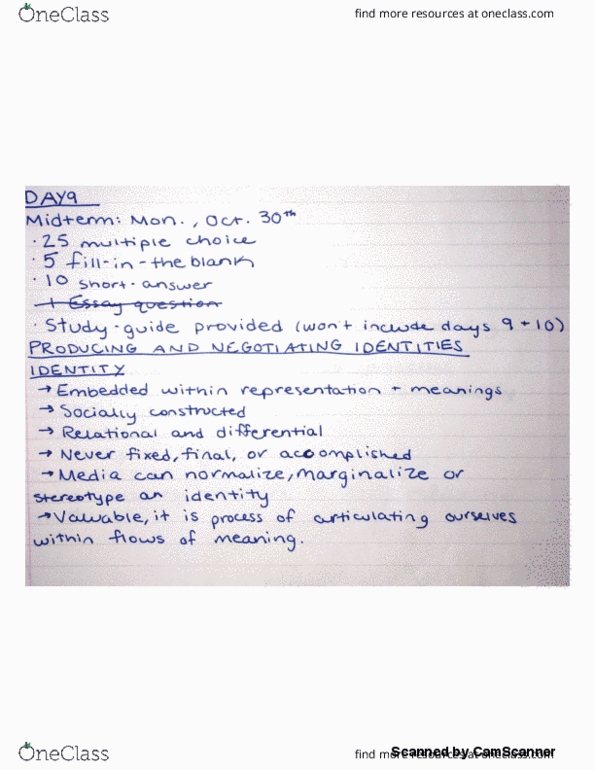 OneClass
find more resources at oneclass.com
DAY9
Midterm: Mon., Oct. 30th
· 25 multiple choice
· 5 fill-in-the blank
· 10 short-answer
+ Essay question
· Study-guide provided (won't include days 9 + 10)
PRODUCING AND NEGOTIATING IDENTITIES
IDENTITY
→ Embedded within representation + meanings
→ Socially constructed
→ Relational and differential
→ Never fixed, final, or accomplished
→ Media can normalize, marginalize or
stereotype an identity
→ Valuable, it is process of articulating ourselves
within flows of meaning.
OneClass
find more resources at oneclass.com
Scanned by CamScanner